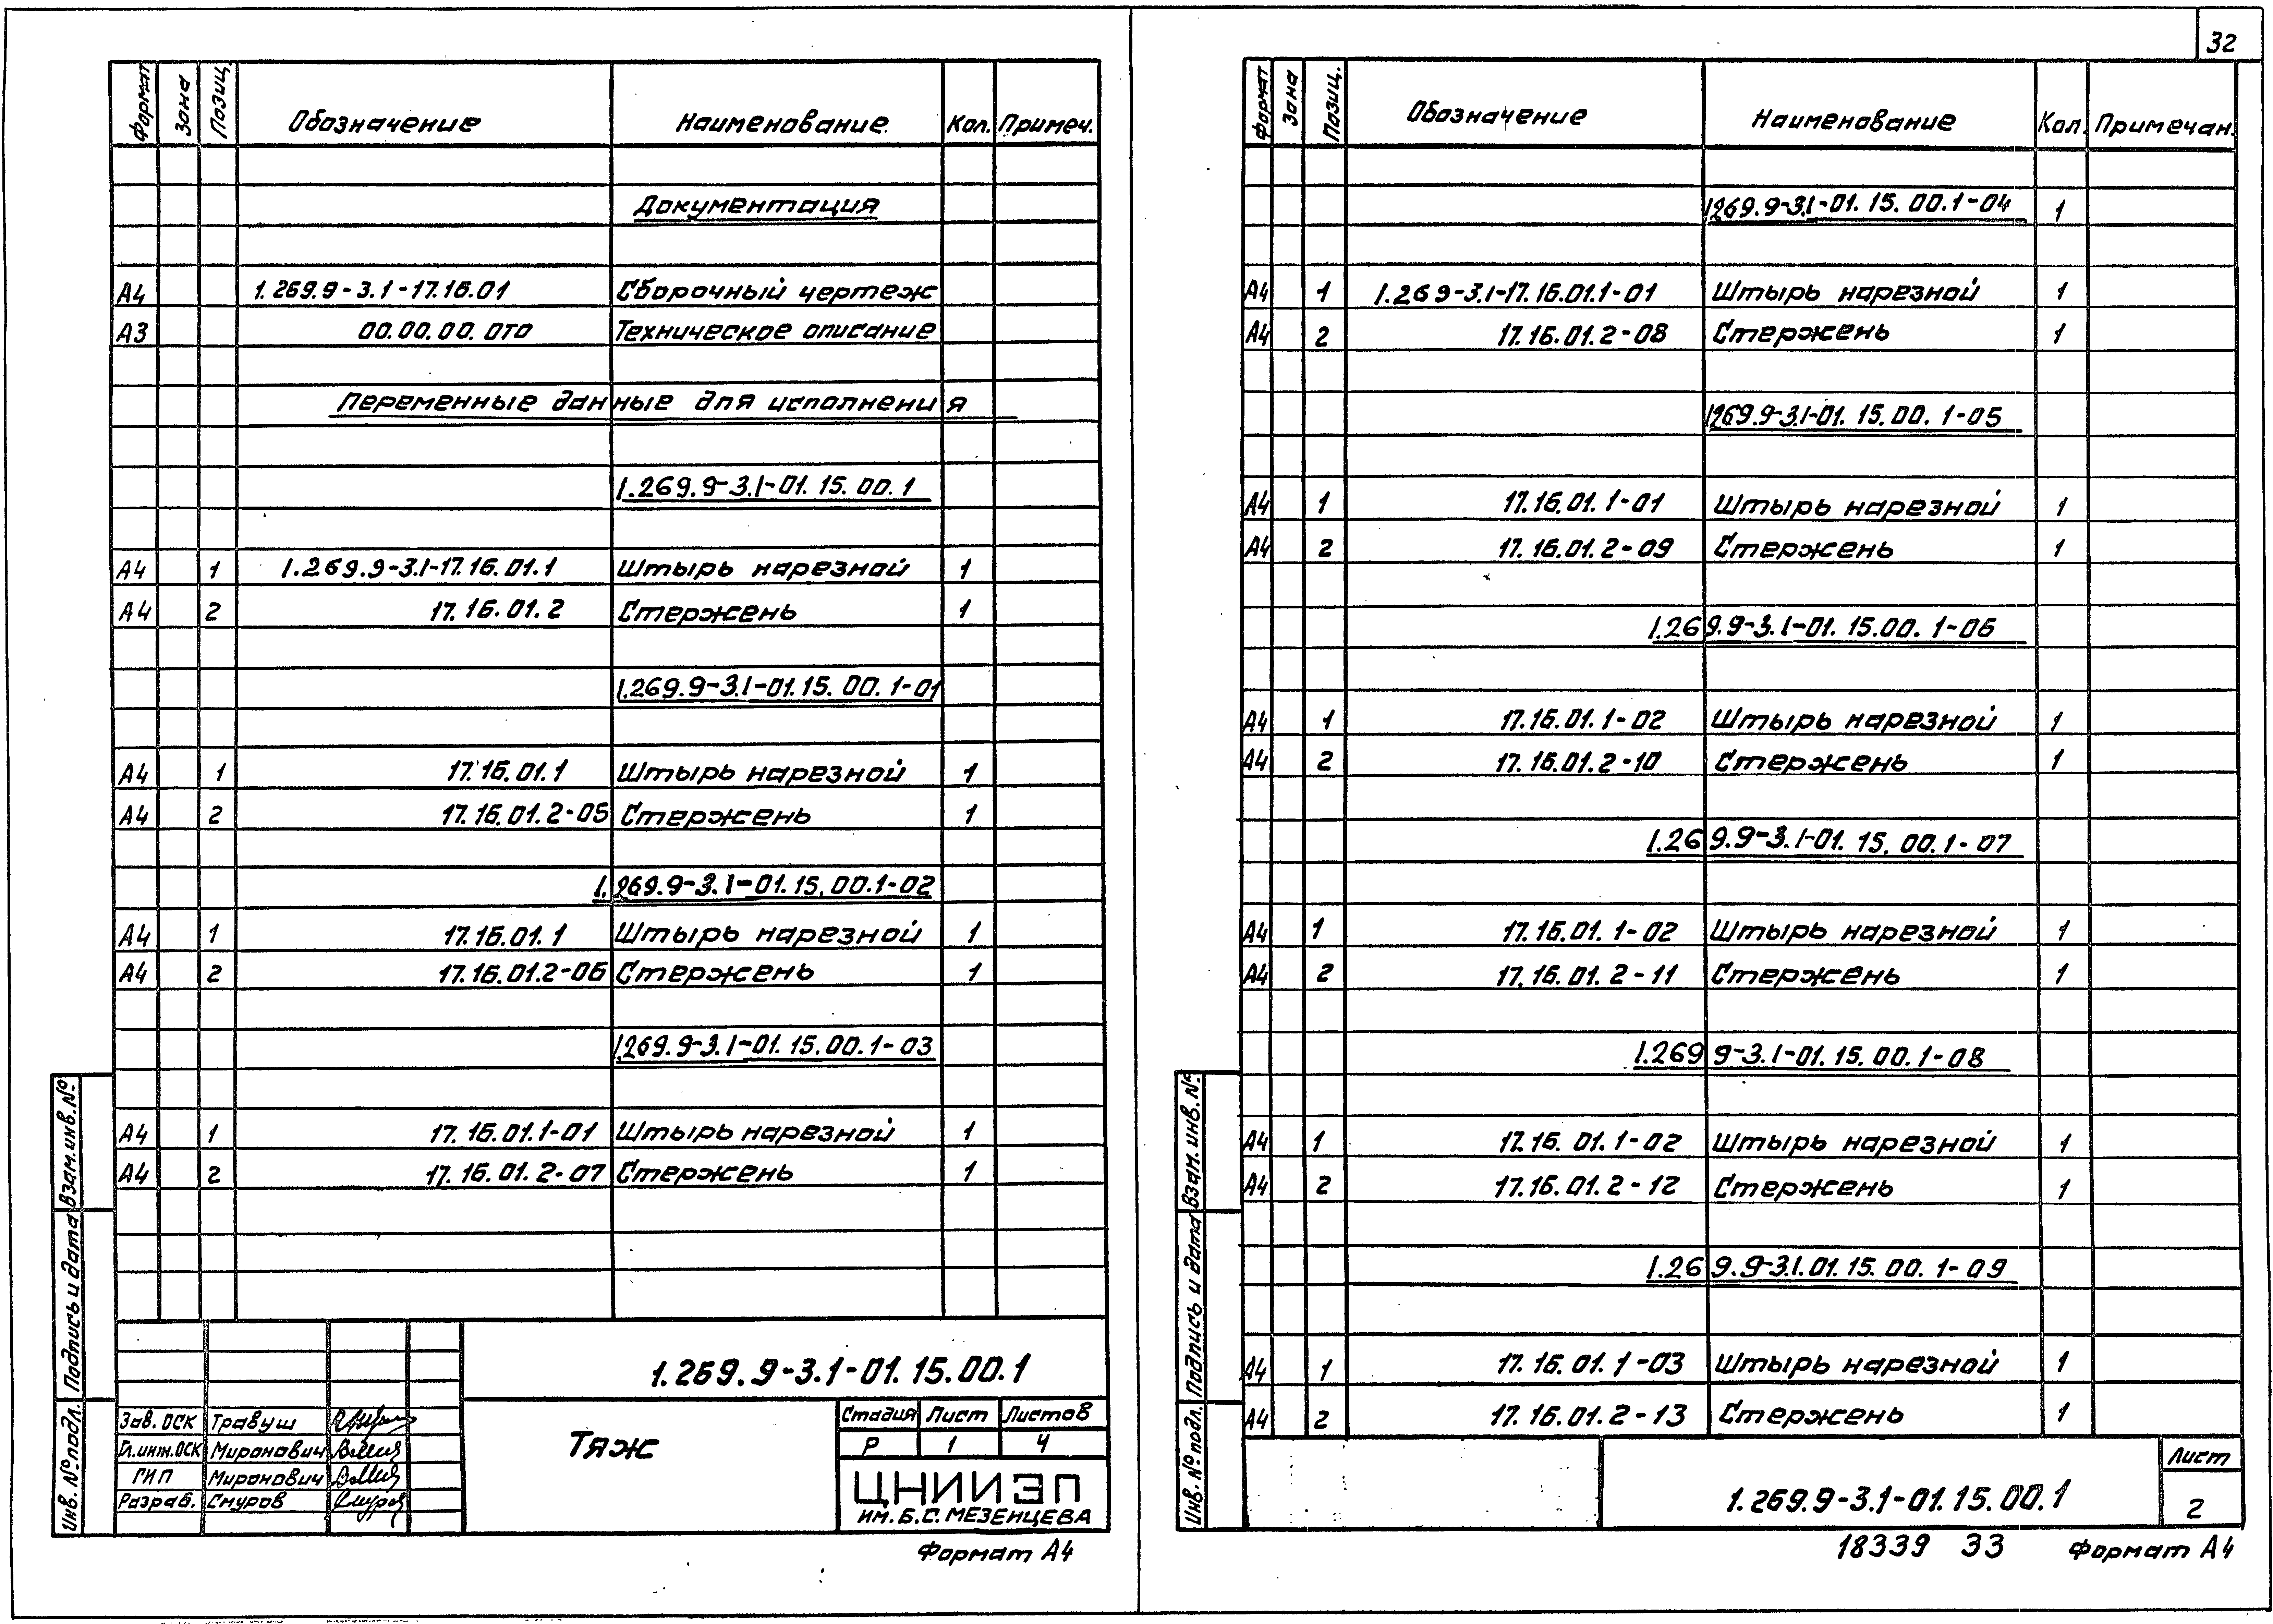 Формат Зона Позиц. Обозначение Наименование Кол. Примеч.
Документация
А4 1.269.9-3.1-17.16.01 Сборочный чертеж
А3 00.00.00.0ТО Техническое описание
Переменные данные для исполнения
1.269.9-3.1-01.15.00.1
А4 1 1.269.9-3.1-17.16.01.1 Штырь нарезной 1
А4 2 17.16.01.2 Стержень 1
1.269.9-3.1-01.15.00.1-01
А4 1 17.16.01.1 Штырь нарезной 1
А4 2 17.16.01.2-05 Стержень 1
1.269.9-3.1-01.15.00.1-02
А4 1 17.16.01.1 Штырь нарезной 1
А4 2 17.16.01.2-06 Стержень 1
1.269.9-3.1-01.15.00.1-03
А4 1 17.16.01.1-01 Штырь нарезной 1
А4 2 17.16.01.2-07 Стержень 1
Взам. инв. №
Подпись и дата
Инв. № подл.
1.269.9-3.1-01.15.00.1
Зав. ОСК Травуш
Гл.инж.ОСК Миронович
ГИП Миронович
Разраб. Смуров
Тяж
Стадия Лист Листов
Р 1 4
ЦНИИЭП
ИМ. Б.С. МЕЗЕНЦЕВА
Формат А4
32
Формат Зона Позиц. Обозначение Наименование Кол. Примечан.
1.269.9-3.1-01.15.00.1-04 1
А4 1 1.269-3.1-17.16.01.1-01 Штырь нарезной 1
А4 2 17.16.01.2-08 Стержень 1
1.269.9-3.1-01.15.00.1-05
А4 1 17.16.01.1-01 Штырь нарезной 1
А4 2 17.16.01.2-09 Стержень 1
1.269.9-3.1-01.15.00.1-06
А4 1 17.16.01.1-02 Штырь нарезной 1
А4 2 17.16.01.2-10 Стержень 1
1.269.9-3.1-01.15.00.1-07
А4 1 17.16.01.1-02 Штырь нарезной 1
А4 2 17.16.01.2-11 Стержень 1
1.269 9-3.1-01.15.00.1-08
А4 1 17.16.01.1-02 Штырь нарезной 1
А4 2 17.16.01.2-12 Стержень 1
1.269.9-3.1.01.15.00.1-09
А4 1 17.16.01.1-03 Штырь нарезной 1
А4 2 17.16.01.2-13 Стержень 1
Взам. инв. №
Подпись и дата
Инв. № подл.
1.269.9-3.1-01.15.00.1
Лист
2
18339 33 Формат А4